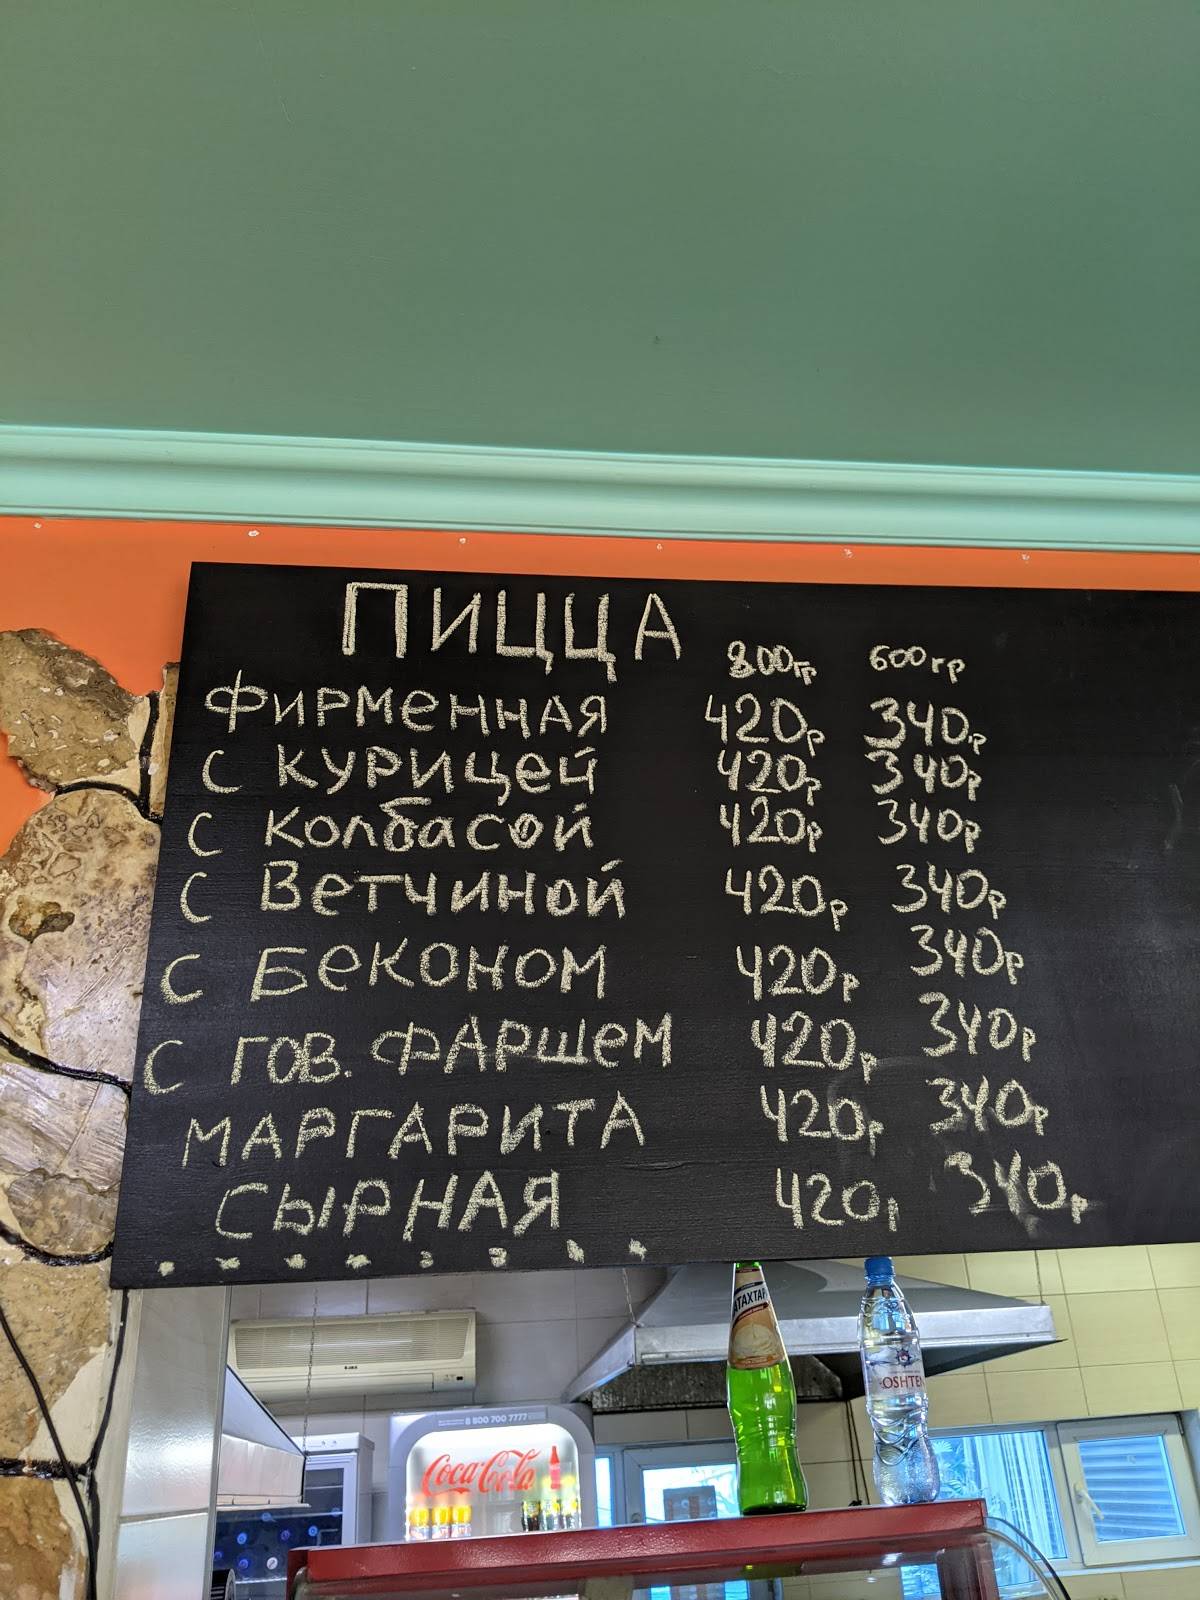 ПИЦЦА
800гр 600гр
ФИРМЕННАЯ 420р 340р
С КУРИЦЕЙ 420р 340р
С КОЛБАСОЙ 420р 340р
С ВЕТЧИНОЙ 420р 340р
С БЕКОНОМ 420р 340р
С ГОВ. ФАРШЕМ 420р 340р
МАРГАРИТА 420р 340р
СЫРНАЯ 420р 340р
8 800 700 7777
Coca-Cola